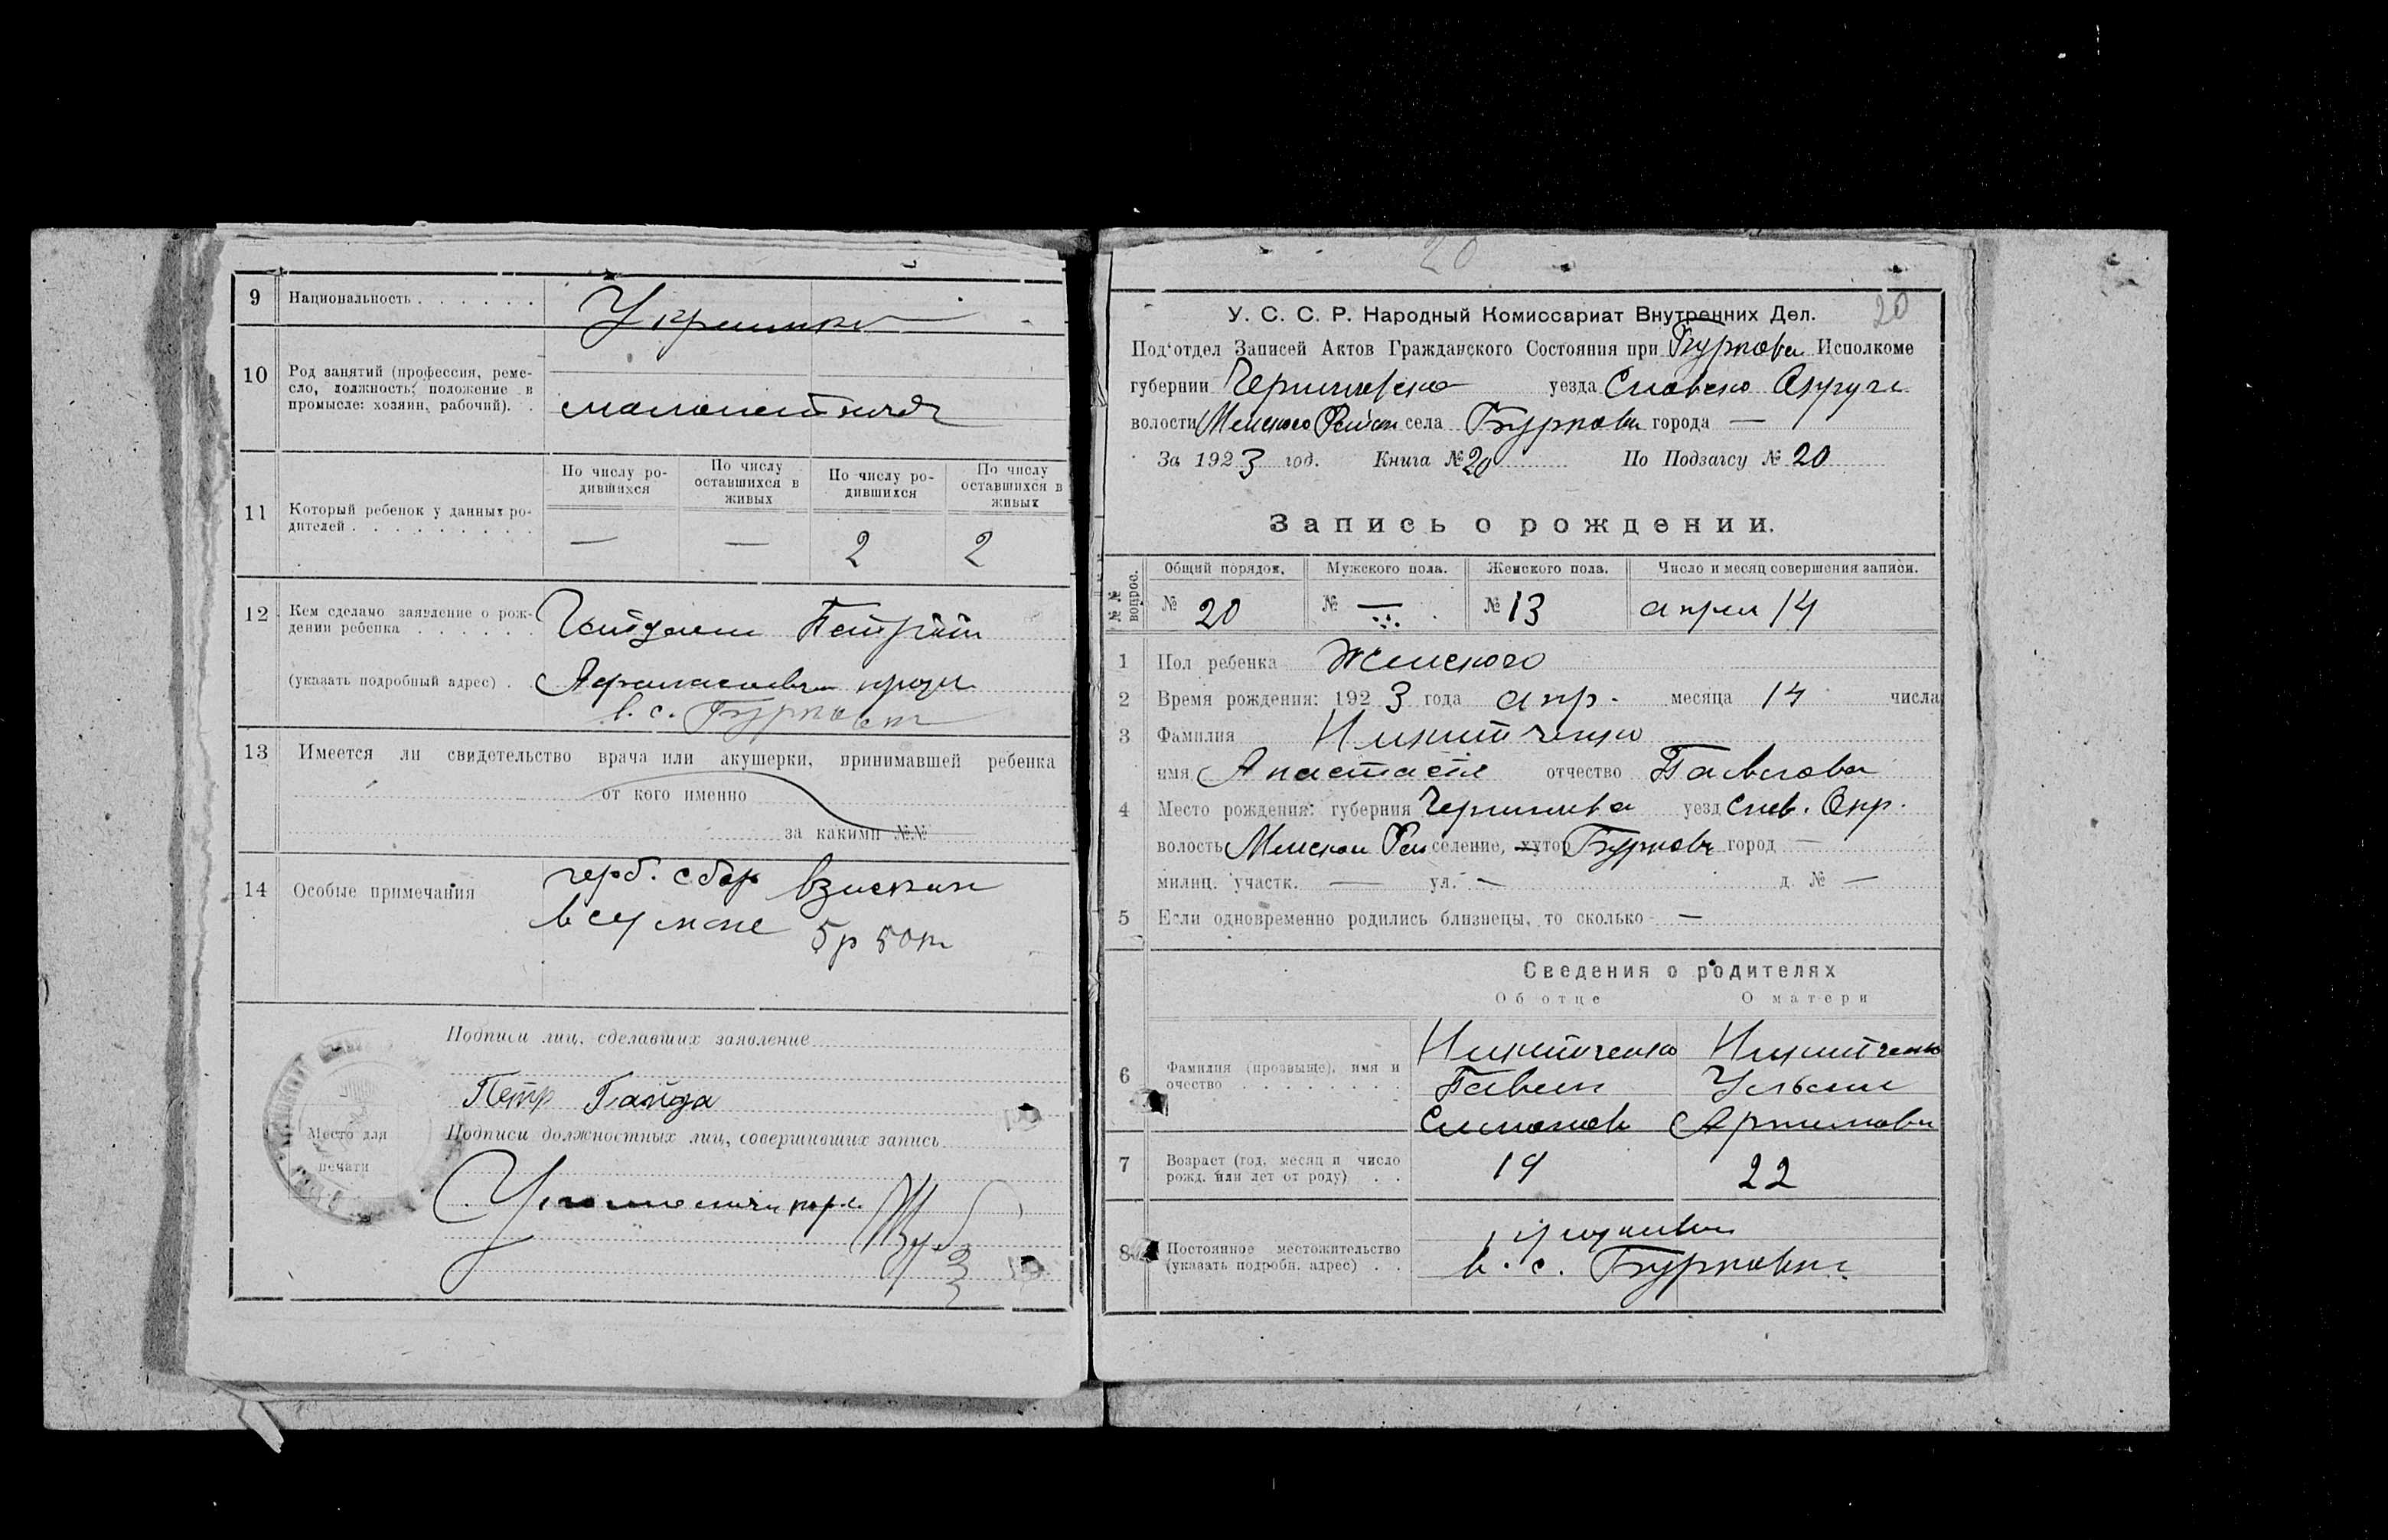 9 Национальность . . . . . .
10 Род занятий (профессия, реме-
сло, должность; положение в
промысле: хозяин, рабочий). .
11 Который ребенок у данных ро-
дителей . . . . . . . . .
По числу ро-
дившихся
По числу
оставшихся в
живых
По числу ро-
дившихся
По числу
оставшихся в
живых
— — 2 2
12 Кем сделано заявление о рож-
дении ребенка . . . . . .
(указать подробный адрес) .
в. с.
13 Имеется ли свидетельство врача или акушерки, принимавшей ребенка
от кого именно
за какими №№
14 Особые примечания
герб. сбор взыскан
в сумме 5р 50к
Подписи лиц, сделавших заявление
Петр Гайда
Подписи должностных лиц, совершивших запись
Место для
печати
20
20
У. С. С. Р. Народный Комиссариат Внутренних Дел.
Под'отдел Записей Актов Гражданского Состояния при Бурковск Исполкоме
губернии Черниговско уезда Сновско Округи
волости Менского Район села Бурковки города —
За 1923 год. Книга № 20 По Подзагсу № 20
Запись о рождении.
№№ вопрос.
Общий порядок. Мужского пола. Женского пола. Число и месяц совершения записи.
№ 20 № — № 13 апрел 14
1 Пол ребенка Женского
2 Время рождения: 1923 года апр. месяца 14 числа
3 Фамилия Никитченко
имя Анастасия отчество Павлова
4 Место рождения: губерния Чернигова уезд Снов. Окр.
волость Менской Рай селение, хутор Бурковк город —
милиц. участк. — ул. — д. № —
5 Если одновременно родились близнецы, то сколько —
Сведения о родителях
Об отце О матери
6 Фамилия (прозвыще), имя и
очество . . . . . . . .
Никитченко Никитченко
Павел Ульяна
7 Возраст (год, месяц и число
рожд. или лет от роду) . .
19 22
8 Постоянное местожительство
(указать подробн. адрес) . .
в. с. Бурковки